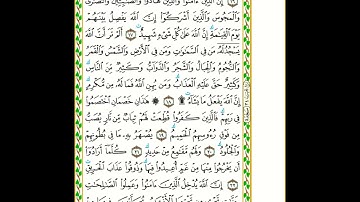 إِنَّ ٱلَّذِينَ ءَامَنُوا۟ وَٱلَّذِينَ هَادُوا۟ وَٱلصَّٰبِـِٔينَ وَٱلنَّصَٰرَىٰ
وَٱلْمَجُوسَ وَٱلَّذِينَ أَشْرَكُوٓا۟ إِنَّ ٱللَّهَ يَفْصِلُ بَيْنَهُمْ
يَوْمَ ٱلْقِيَٰمَةِ إِنَّ ٱللَّهَ عَلَىٰ كُلِّ شَىْءٍ شَهِيدٌ ١٧ أَلَمْ تَرَ أَنَّ ٱللَّهَ
يَسْجُدُ لَهُۥ مَن فِى ٱلسَّمَٰوَٰتِ وَمَن فِى ٱلْأَرْضِ وَٱلشَّمْسُ وَٱلْقَمَرُ
وَٱلنُّجُومُ وَٱلْجِبَالُ وَٱلشَّجَرُ وَٱلدَّوَآبُّ وَكَثِيرٌ مِّنَ ٱلنَّاسِ
وَكَثِيرٌ حَقَّ عَلَيْهِ ٱلْعَذَابُ وَمَن يُهِنِ ٱللَّهُ فَمَا لَهُۥ مِن مُّكْرِمٍ
إِنَّ ٱللَّهَ يَفْعَلُ مَا يَشَآءُ ۩ ١٨ هَٰذَانِ خَصْمَانِ ٱخْتَصَمُوا۟
فِى رَبِّهِمْ فَٱلَّذِينَ كَفَرُوا۟ قُطِّعَتْ لَهُمْ ثِيَابٌ مِّن نَّارٍ يُصَبُّ
مِن فَوْقِ رُءُوسِهِمُ ٱلْحَمِيمُ ١٩ يُصْهَرُ بِهِۦ مَا فِى بُطُونِهِمْ
وَٱلْجُلُودُ ٢٠ وَلَهُم مَّقَٰمِعُ مِنْ حَدِيدٍ ٢١ كُلَّمَآ أَرَادُوٓا۟
أَن يَخْرُجُوا۟ مِنْهَا مِنْ غَمٍّ أُعِيدُوا۟ فِيهَا وَذُوقُوا۟ عَذَابَ ٱلْحَرِيقِ
٢٢ إِنَّ ٱللَّهَ يُدْخِلُ ٱلَّذِينَ ءَامَنُوا۟ وَعَمِلُوا۟ ٱلصَّٰلِحَٰتِ